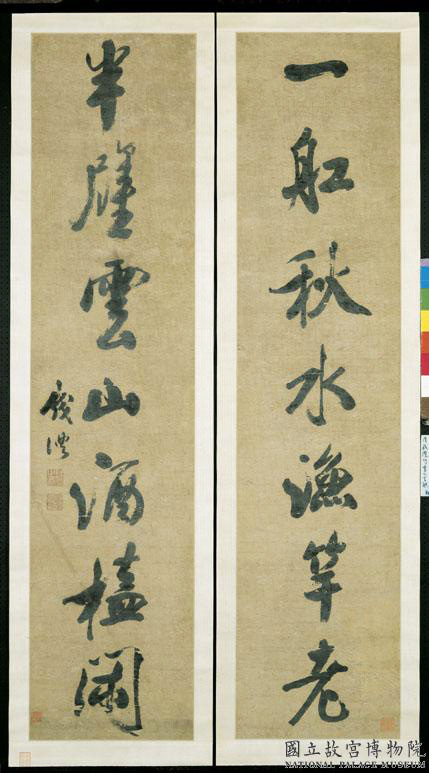 一舡秋水漁竿老
半雲山酒榼
錢灃
國立故宮博物院
NATIONAL PALACE MUSEUM